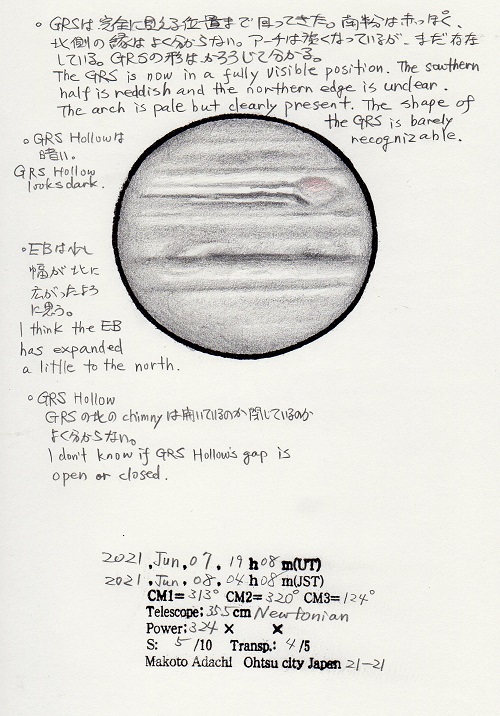 。GRSは完全に見える位置まで回ってきた。南半分は赤っぽく、
北側の縁はよく分からない。アーチは淡くなっているが、まだ存在
している。GRSの形はかろうじて分かる。
The GRS is now in a fully visible position. The southern
half is reddish and the northern edge is unclear.
The arch is pale but clearly present. The shape of
the GRS is barely
recognizable.
。GRS Hollowは
暗い。
GRS Hollow
looks dark.
。EBは
幅が北に
広がったよう
に思う。
I think the EB
has expanded
a little to the north.
。GRS Hollow
GRSの北のchimnyは開いているのか閉じているのか
よく分からない。
I don't know if GRS Hollow's gap is
open or closed.
2021,Jun,07, 19 h 08 m(UT)
2021,Jun,08, 04 h 08 m(JST)
CM1= 313° CM2= 320° CM3= 124°
Telescope: 355 cm Newtonian
Power: 324 × ×
S: 5 /10 Transp.: 4 /5
Makoto Adachi Ohtsu city Japan 21-21